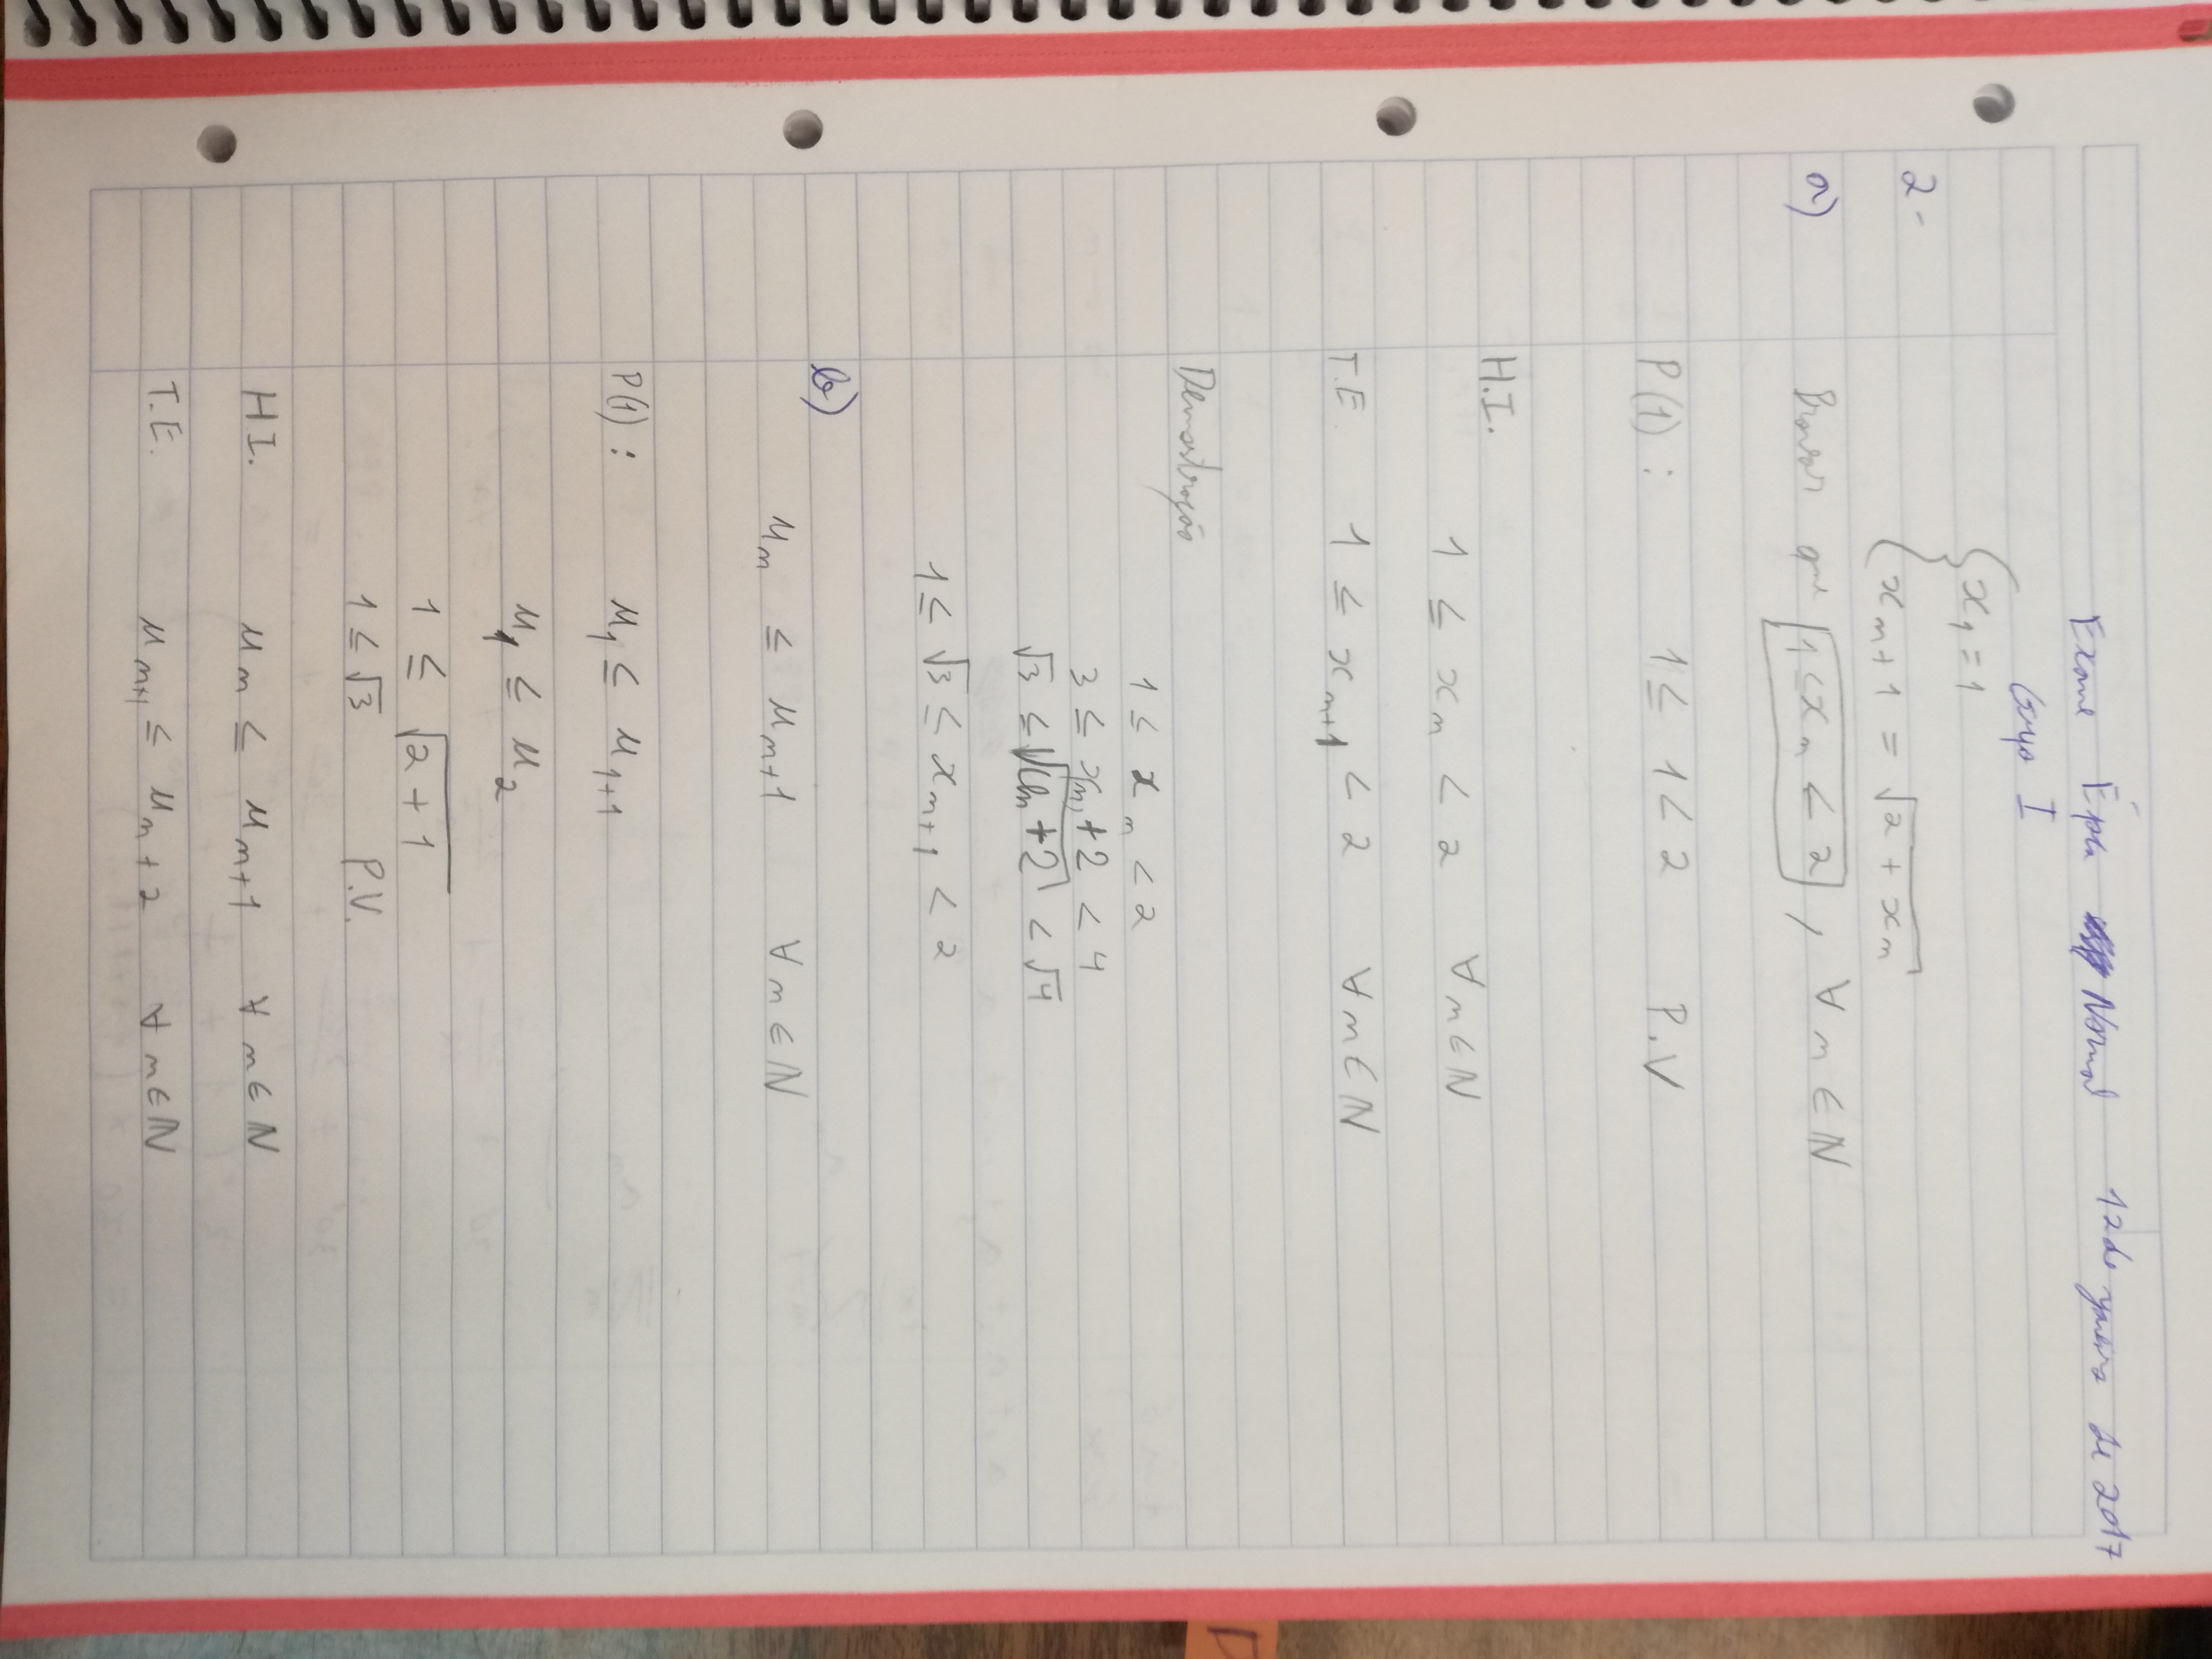 Exame Época Normal 12 de janeiro de 2017
Grupo I
2- { x₁ = 1
x_{n+1} = √(2 + x_n)
a) Provar que 1 ≤ x_n < 2 , ∀ n ∈ ℕ
P(1) : 1 ≤ 1 < 2 P.V
H.I.
1 ≤ x_n < 2 ∀ n ∈ ℕ
T.E. 1 ≤ x_{n+1} < 2 ∀ n ∈ ℕ
Demostração
1 ≤ x_n < 2
3 ≤ x_n + 2 < 4
√3 ≤ √(u_n + 2) < √4
1 ≤ √3 ≤ x_{n+1} < 2
b)
u_n ≤ u_{n+1} ∀ n ∈ ℕ
P(1) : u₁ ≤ u_{1+1}
u₁ ≤ u₂
1 ≤ √(2 + 1)
1 ≤ √3 P.V.
H I. u_n ≤ u_{n+1} ∀ n ∈ ℕ
T.E. u_{n+1} ≤ u_{n+2} ∀ n ∈ ℕ